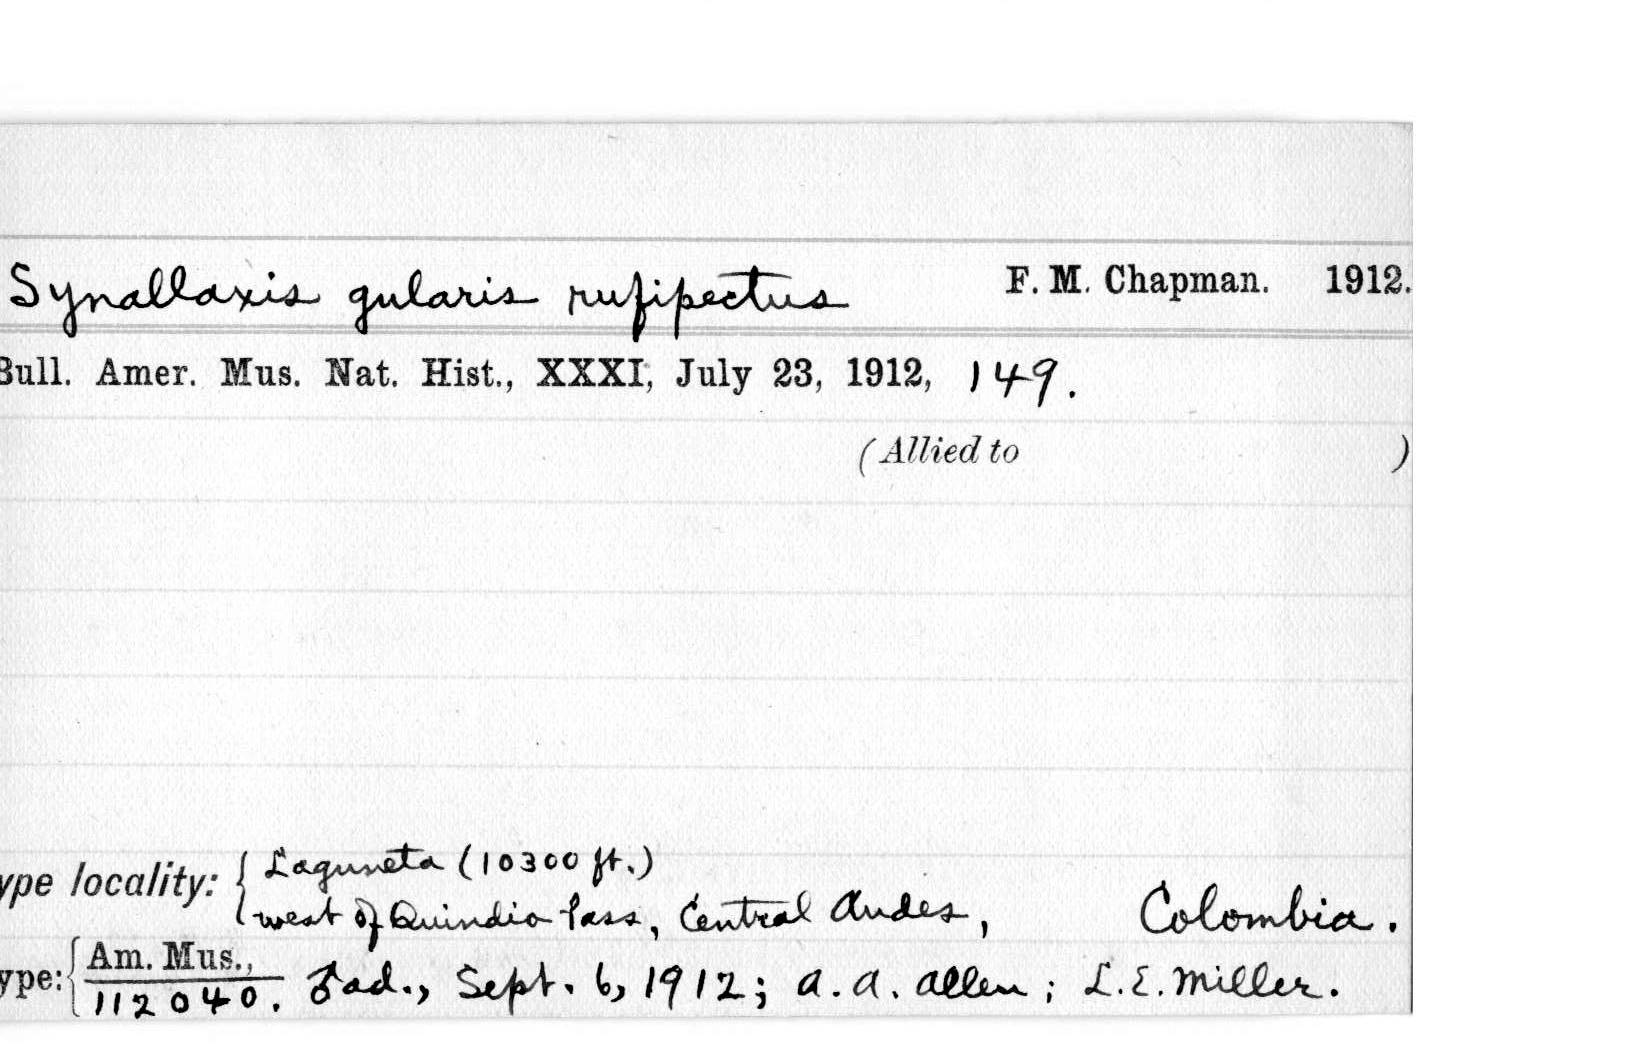 Synallaxis gularis rufipectus F. M. Chapman. 1912.
Bull. Amer. Mus. Nat. Hist., XXXI, July 23, 1912, 149.
(Allied to )
ype locality: { Laguneta (10300 ft.)
west of Quindio Pass, Central Andes, Colombia.
ype: { Am. Mus., ♂ ad., Sept. 6, 1912; A. A. Allen; L. E. Miller.
112040.